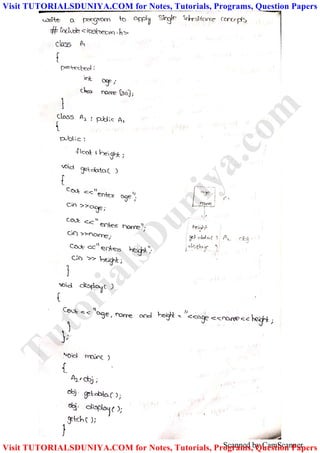 Visit TUTORIALSDUNIYA.COM for Notes, Tutorials, Programs, Question Papers
write a program to apply Single Inheritance concepts
#include<iostream.h>
class A1
{
protected:
int age;
char name[20];
}
Class A2 : public A1
{
public:
float height;
void getdata( )
{
Cout <<"enter age";
Cin >>age;
Cout <<"enter name";
Cin >>name;
Cout <<"enter height";
Cin >> height;
}
void display( )
{
Cout<< "age, name and height = "<<age<<name<<height;
}
};
void main( )
{
A2 obj;
obj. getdata( );
obj. display( );
getch( );
}
age
name
height
getdata( ) A2 obj
display
TutorialsDuniya.com
Scanned by CamScanner
Visit TUTORIALSDUNIYA.COM for Notes, Tutorials, Programs, Question Papers